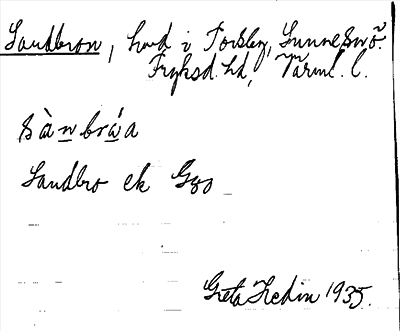 Sandbron, hmd i Torsby, Sunne snö.
Fryksd. hd, Värml. l.
sà̀n brá̀a
Sandbro ek G80
Greta Hedin 1935.